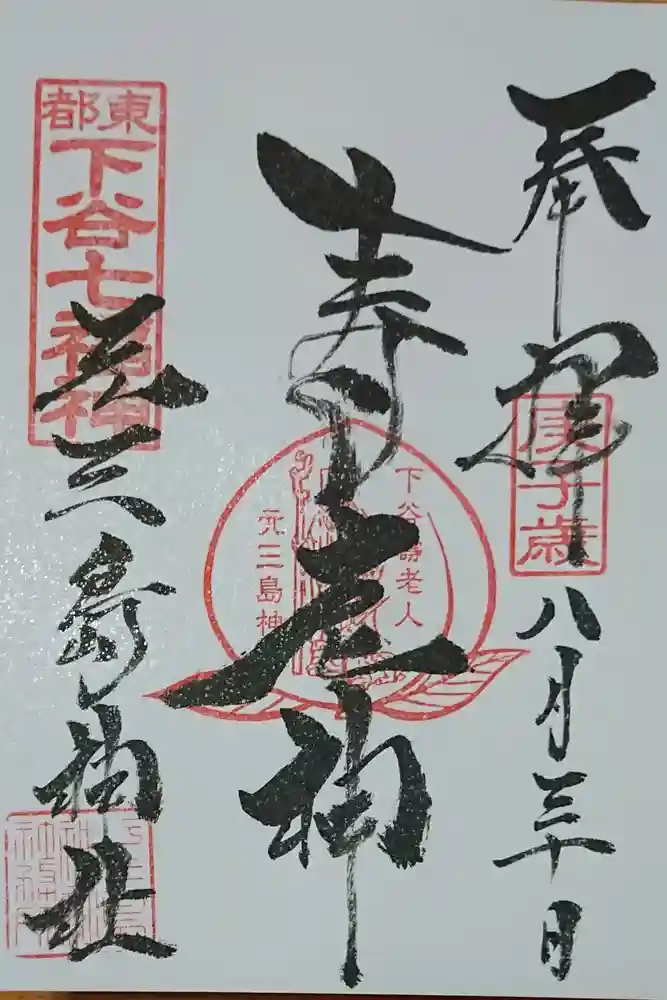 奉拝
庚子歳
八月三十日
寿老神
下谷壽老人
元三島神
東都
下谷七福神
元三島神社